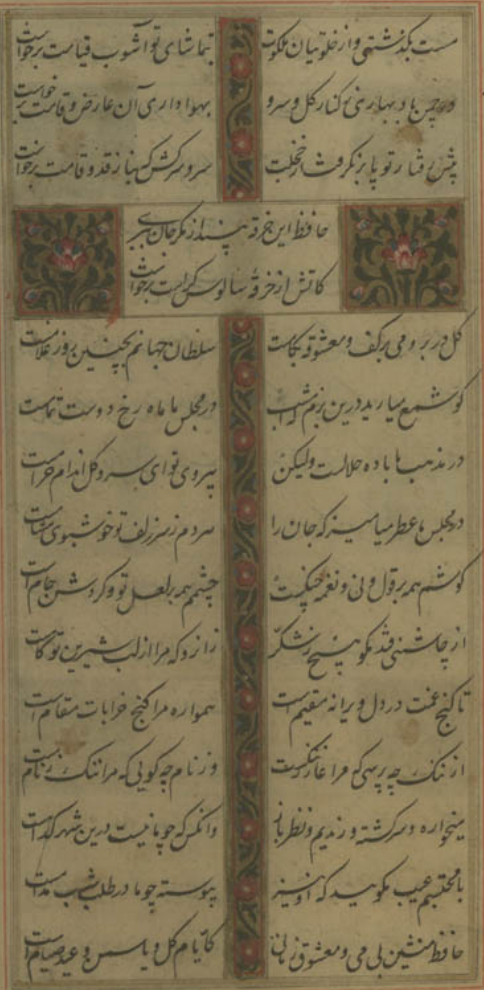 مست بگذشتی و از خلوتیان ملکوت	بتماشای تو آشوب قیامت برخواست
در چمن باد بهاری ز کنار گل و سرو	بهواداری آن عارض و قامت برخواست
پیش رفتار تو پا بر نگرفت از خجلت	سرو سرکش که بناز قد و قامت برخواست
حافظ این خرقه بینداز مگر جان ببری
کاتش از خرقه سالوس کرامت برخواست
گل در بر و می بر کف و معشوقه بکامست	سلطان جهانم بچنین روز غلامست
گو شمع میارید درین بزم که امشب	در مجلس ما ماه رخ دوست تمامست
در مذهب ما باده حلالست ولیکن	بی روی تو ای سرو گل اندام حرامست
در مجلس ما عطر میامیز که جان را	هر دم ز سر زلف تو خوشبوی مشامست
گوشم همه بر قول نی و نغمه چنگست	چشمم همه بر لعل تو و گردش جام است
از چاشنی قند مگو هیچ ز شکر	زان رو که مرا از لب شیرین تو کامست
تا گنج غمت در دل ویرانه مقیم است	همواره مرا کنج خرابات مقام است
از ننگ چه پرسی که مرا نام ز ننگست	وز نام چه گویی که مرا ننگ ز نام است
میخواره و سرگشته و رندیم و نظرباز	وانکس که چو ما نیست درین شهر کدامست
با محتسبم عیب مگویید که او نیز	پیوسته چو ما در طلب شرب مدامست
حافظ منشین بی می و معشوق زمانی	کایام گل و یاسمن و عید صیام است